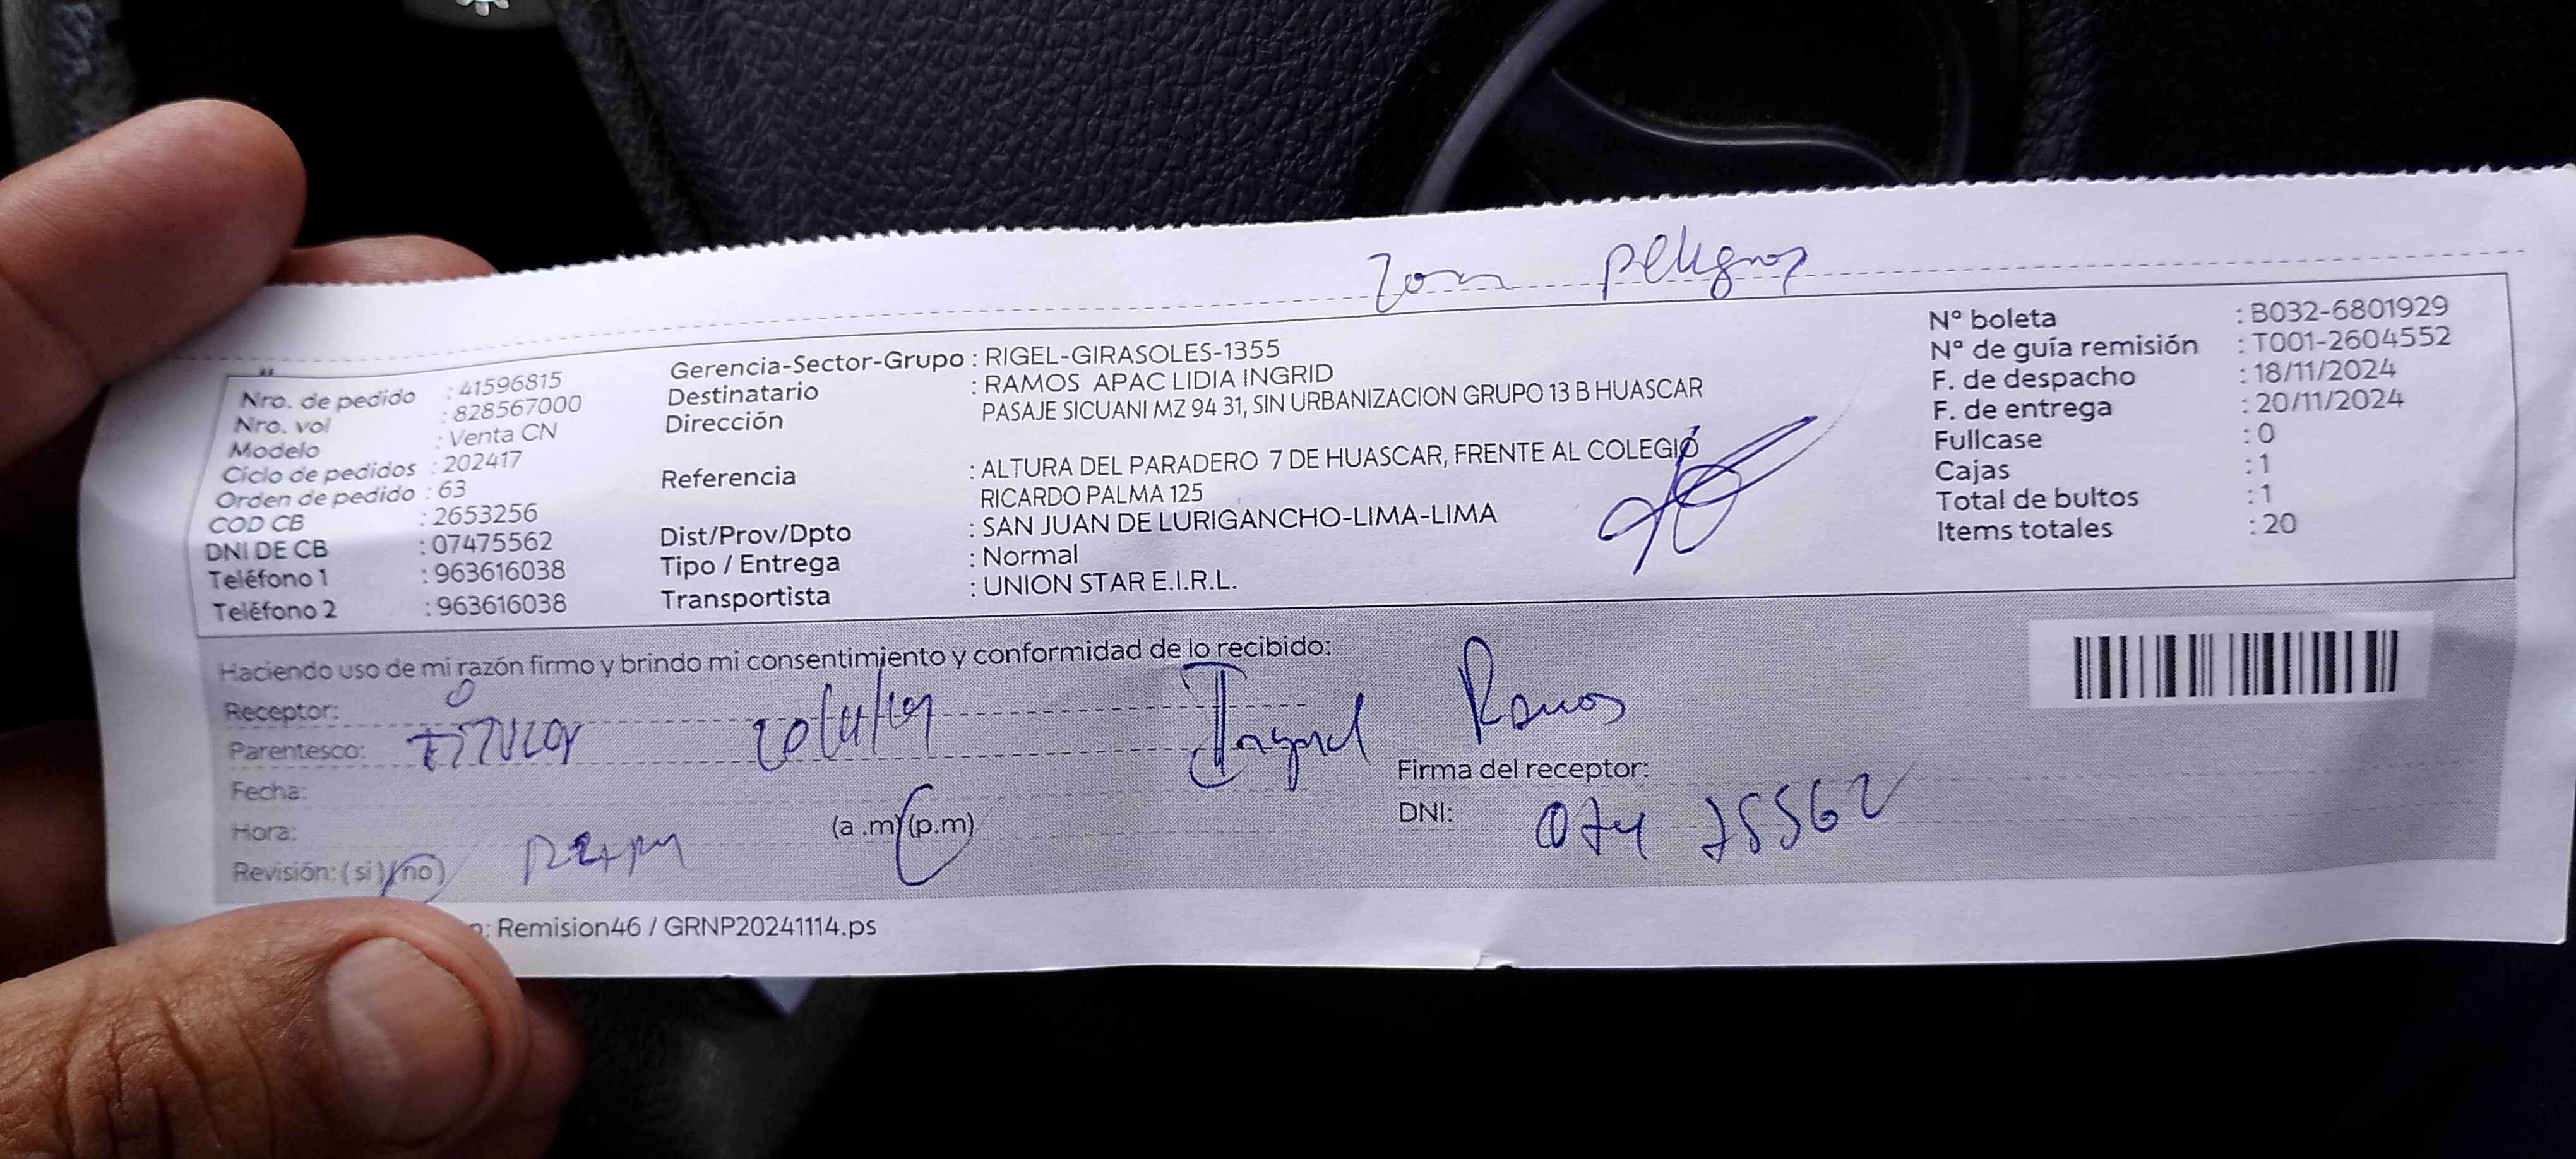 Zona peligros
Nro. de pedido : 41596815
Nro. vol : 828567000
Modelo : Venta CN
Ciclo de pedidos : 202417
Orden de pedido : 63
COD CB : 2653256
DNI DE CB : 07475562
Teléfono 1 : 963616038
Teléfono 2 : 963616038
Gerencia-Sector-Grupo : RIGEL-GIRASOLES-1355
Destinatario : RAMOS APAC LIDIA INGRID
Dirección PASAJE SICUANI MZ 94 31, SIN URBANIZACION GRUPO 13 B HUASCAR
Referencia : ALTURA DEL PARADERO 7 DE HUASCAR, FRENTE AL COLEGIO
RICARDO PALMA 125
Dist/Prov/Dpto : SAN JUAN DE LURIGANCHO-LIMA-LIMA
Tipo / Entrega : Normal
Transportista : UNION STAR E.I.R.L.
N° boleta : B032-6801929
N° de guía remisión : T001-2604552
F. de despacho : 18/11/2024
F. de entrega : 20/11/2024
Fullcase : 0
Cajas : 1
Total de bultos : 1
Items totales : 20
Haciendo uso de mi razón firmo y brindo mi consentimiento y conformidad de lo recibido:
Receptor:
Parentesco: Titular
Ingrid Ramos
Fecha:
Firma del receptor:
Hora: (a .m) (p.m)
DNI: 07475562
Revisión: (si) (no)
: Remision46 / GRNP20241114.ps